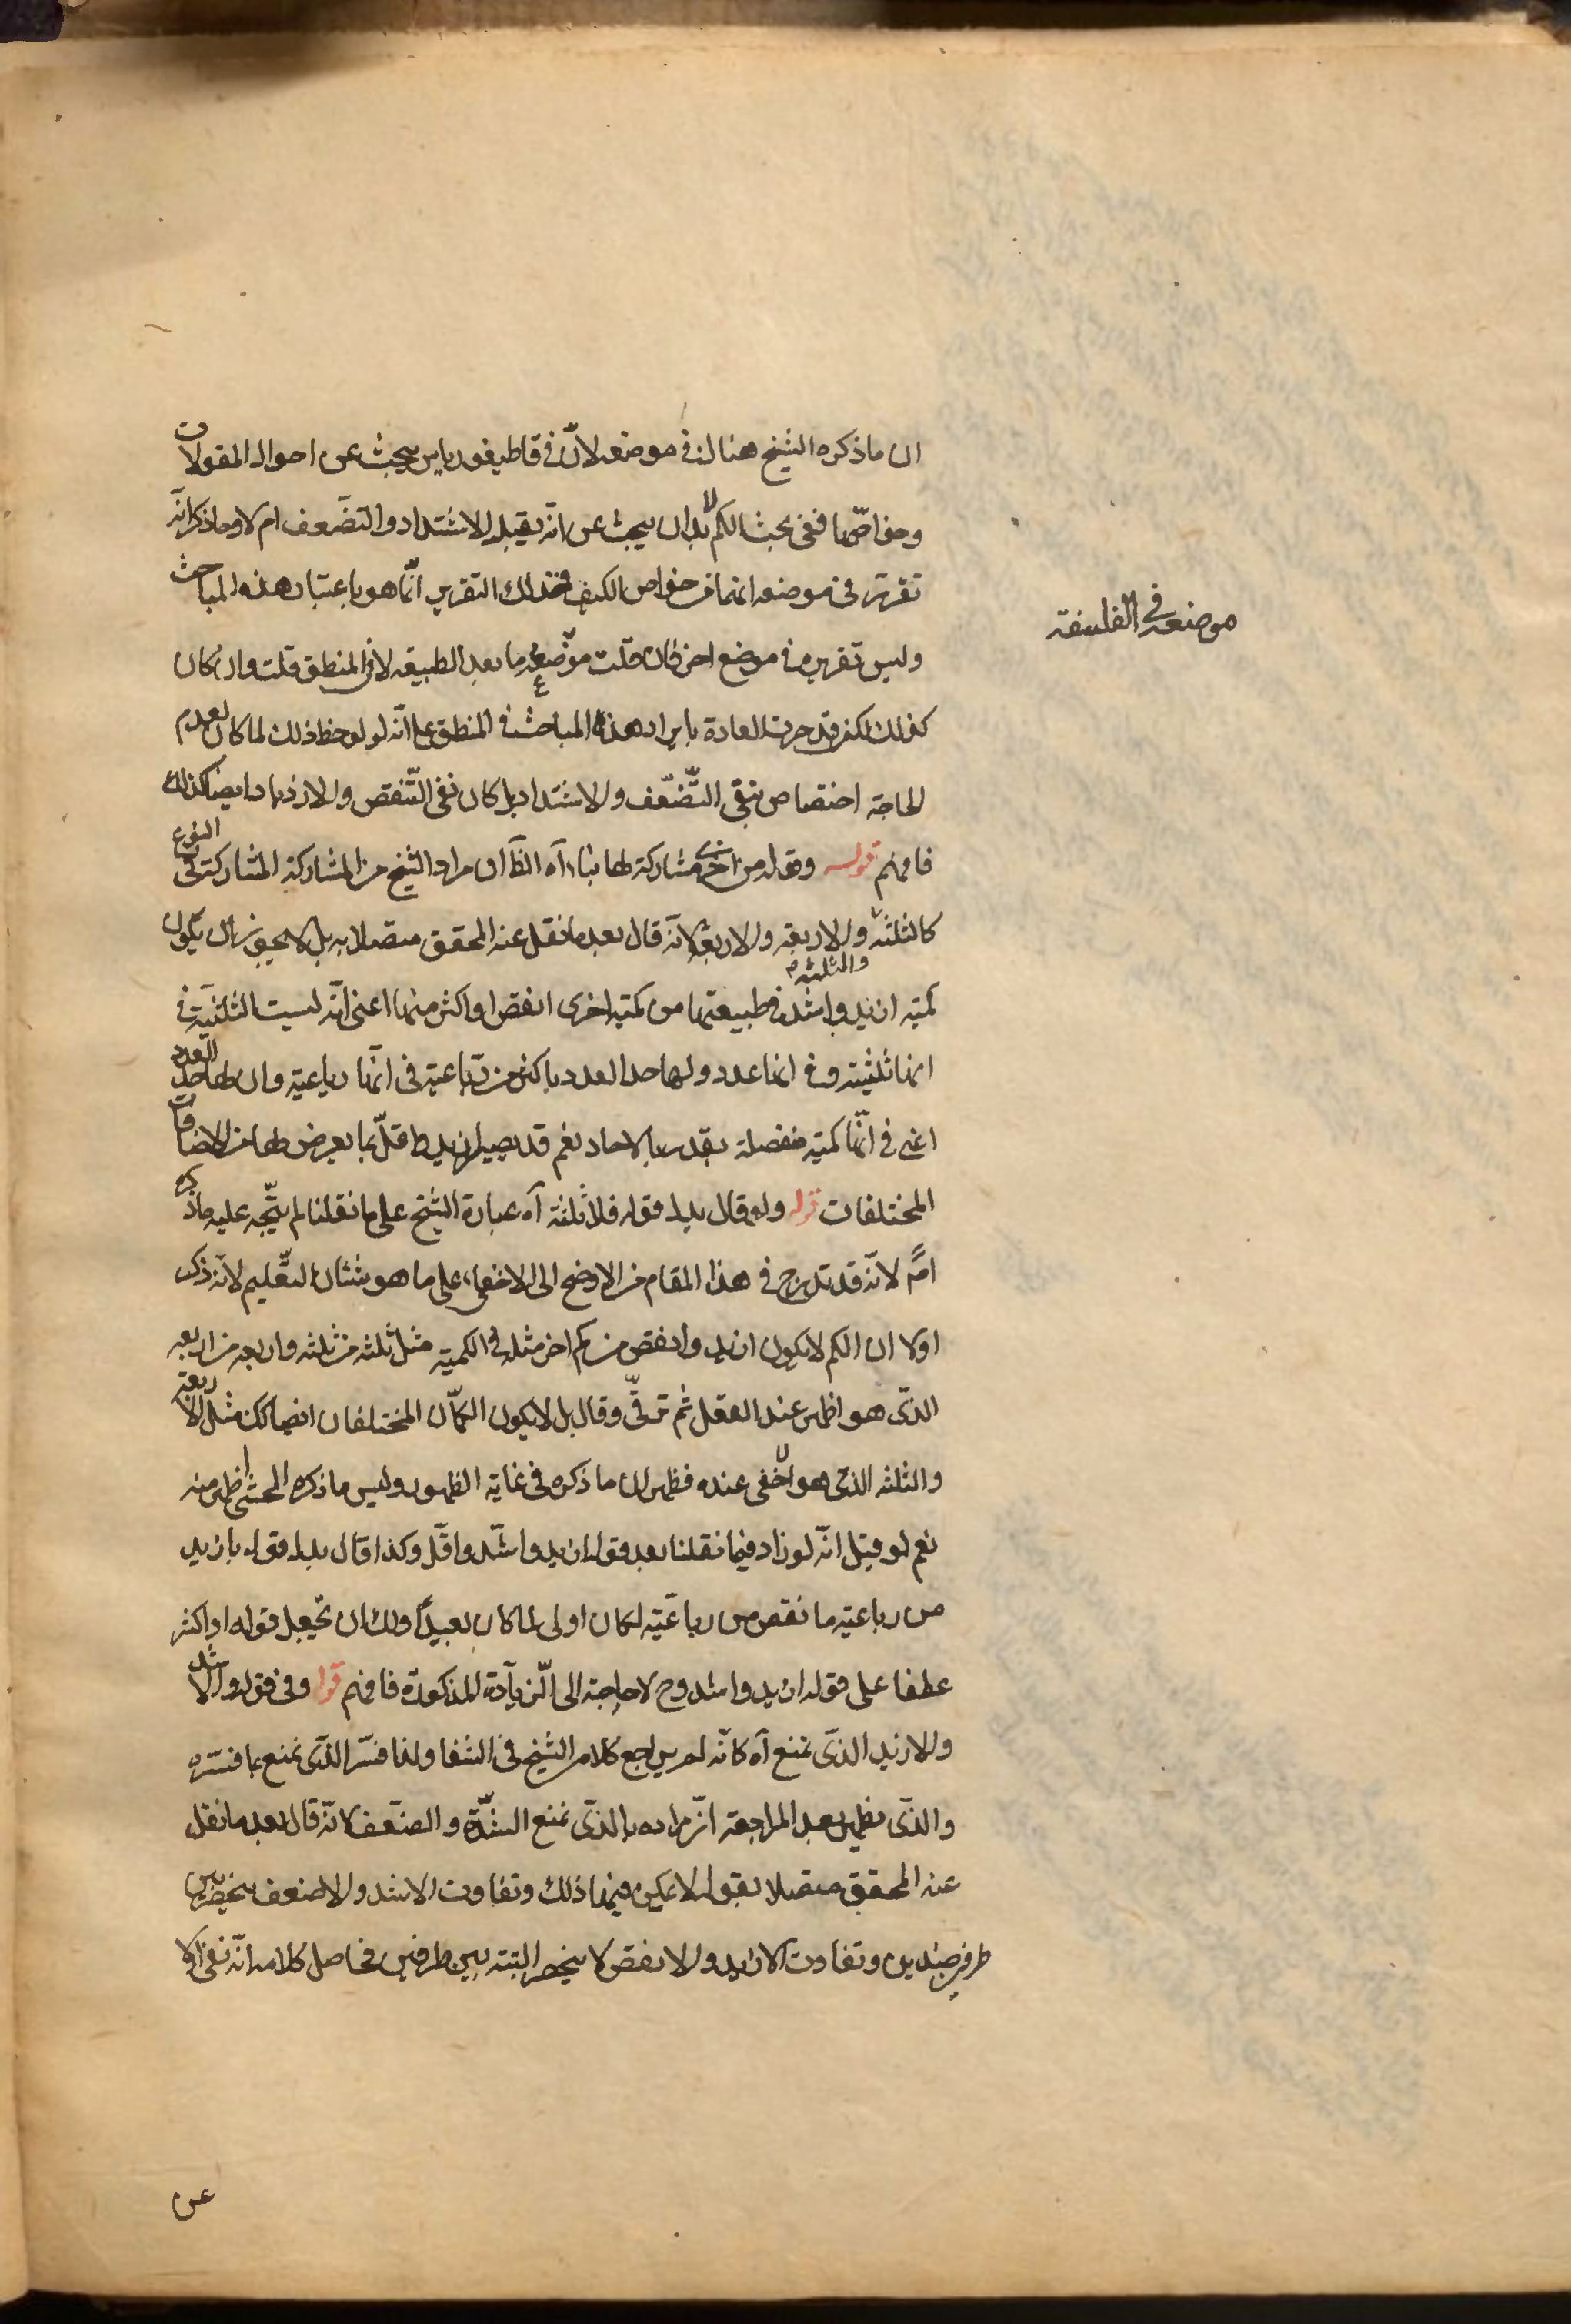 ان ما ذكره الشيخ هناك في موضعه لأنّ في قاطيغورياس يبحث عن احوال المقولات
وخواصّها ففي بحث الكم لابد ان يبحث عن انّه يقبل الاشتداد والتضعف ام لا وما ذكر انّه
تقرّر في موضعه انهما من خواص الكيف فذلك التقرير انّما هو باعتبار هذه المباحث
موضعه في الفلسفة
وليس تقريره في موضع اخر فان قلت موضعه ما بعد الطبيعة لا في المنطق قلت وان كان
كذلك لكن قد جرت العادة بايراد هذه المباحث في المنطق على انّه لو لوحظ ذلك لما كان لعدم
الحاجة اختصاص بنفي التّضعّف والاشتداد بل كان نفي التّنقص والازدياد ايضا كذلك
فافهم قوله وقوله من اخرى مشاركة لها بناء اه الظّ ان مراد الشيخ من المشاركة المشاركة في النوع
كالثلثة والثلثة والاربعة والاربعة لانّه قال بعد ما نقل عنه المحقق متصلا به بل لا يجوز ان يكون
كمية ازيد واشد في طبيعتها من كمية اخرى انقص او اكثر منها اعنى انّه ليست الثلثية في
انها ثلثية وفي انها عدد ولها حد العدد باكثر من رباعية في انّها رباعية وان لها حد العدد
اعني في انّها كمية منفصلة بقدر بالاحاد نعم قد يصير ازيد واقلّ بما يعرض لها من الاضافات
المختلفات قوله ولو قال بدل قوله فلا ثلثة آه عبارة الشيخ على ما نقلنا لم يتّجه عليه ما ذكره
امّ لانّه قد تدرج في هذا المقام من الاوضح الى الاخفى على ما هو شان التّعليم لانّه ذكر
اولا ان الكم لا يكون ازيد وانقص من كم اخر مثله في الكمية مثل ثلثة من ثلثة واربعة من اربعة
الذي هو اظهر عند العقل ثم ترقّى وقال بل لا يكون الكمّان المختلفان ايضا كك مثل الاربعة
والثلثة الذي هو اخفى عنده فظهر ان ما ذكره في غاية الظهور وليس ما ذكره المحشي اظهر منه
نعم لو قيل انّه لو زاد فيما نقلنا بعد قوله ازيد واشدّ واقلّ وكذا قال بدل قوله بازيد
من رباعية ما نقص من رباعيّة لكان اولى لما كان بعيدًا ولك ان تجعل قوله او اكثر
عطفا على قوله ازيد واشد وح لا حاجة الى الزيادة المذكورة فافهم قوله وفي قوله والاشد
والازيد الذي نمنع آه كانّه لم يراجع كلام الشيخ في الشفا ولذا فسّر الذي نمنع بما فسّره
والذي يظهر بعد المراجعة انّ مراده بالذي نمنع الشدّة والضعف لانّه قال بعد ما نقل
عنه المحقق متصلا بقوله لا يمكن فيها ذلك وتفاوت الاشد والاضعف ينحصر بين
طرفين ضدين وتفاوت الازيد والانقص لا ينحصر البتة بين طرفين فحاصل كلامه انّه نفى اولا
عن